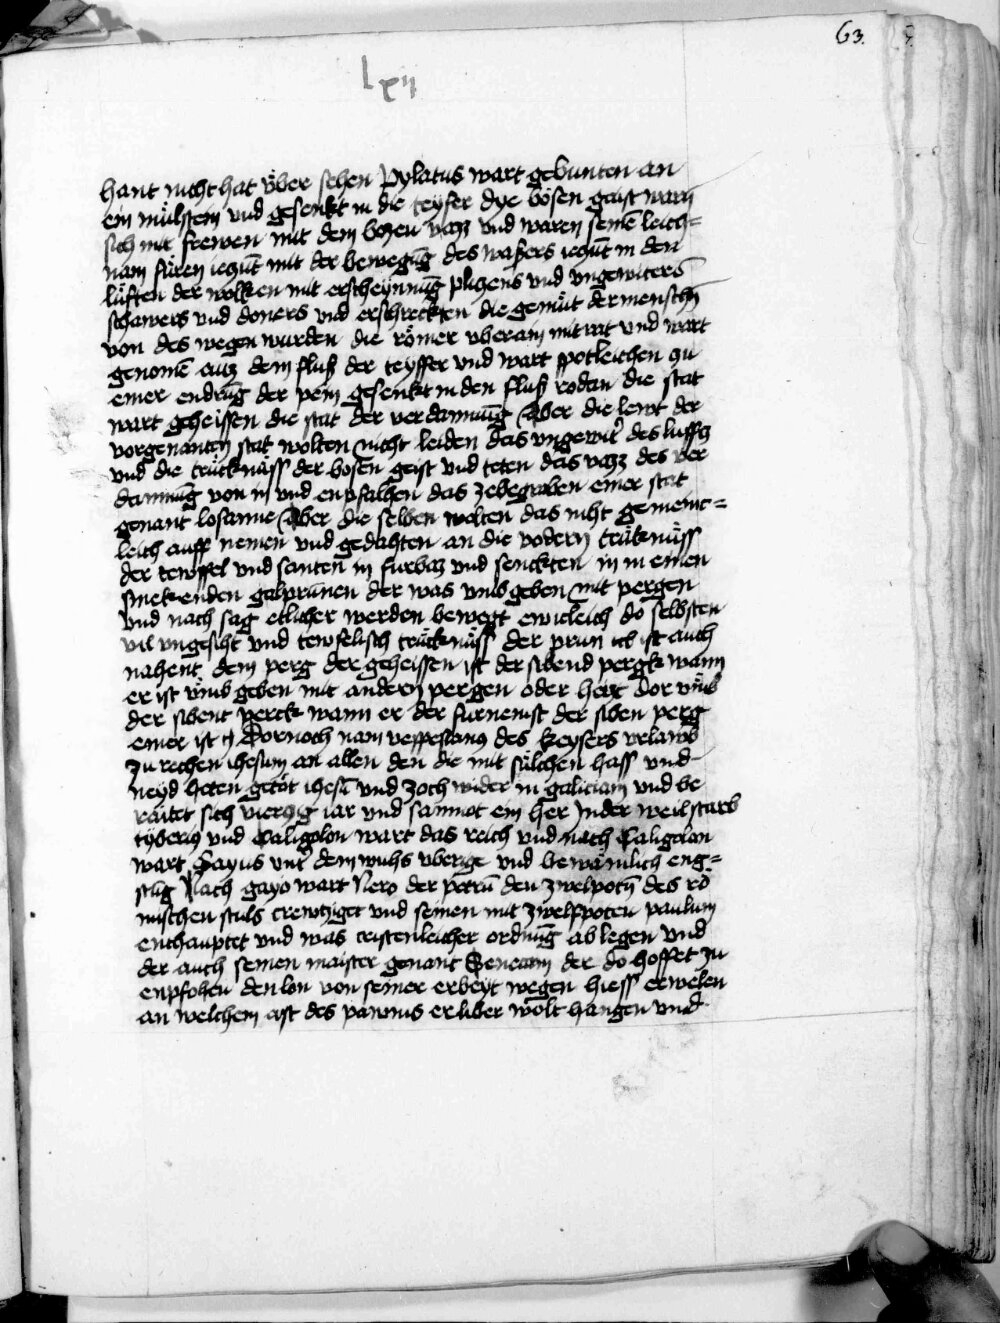 63.
lxij
hant nicht hat vͤber sehen Pylatus wart gebunten an
ein muͤlstein vnd gesenkt in die teyfer dye boͤsen geist warn
sich mit frewen mit dem bozen vazz vnd waren seinē leich=
nam fuͤren iczūt mit der bewegūg des waßers iczūt in den
luͤften der wolken mit erscheynnūg pliczens vnd vngewiters
schawers vnd doners vnd erschreckten die gemuͤt der menschn̄
von des wegen wurden die roͤmer vberain mit rat vnd wart
genomē auz dem fluß der teyffer vnd wart spotleichen zu
einer endrūg der pein gesenkt in den fluß rodan die stat
wart geheissen die stat der verdamnūg Aber die lewt der
vorgenanten stat wolten nicht leiden das vngewitʼ des luffcz
vnd die truͤcknuͤss der bosen geist vnd teten das vazz des ver
damnūg von in vnd enpfalhen das zebegraben einer stat
genant losanne Aber die selben wolten das niht gemeinc=
leich auff nemen vnd gedahten an die vodern truͤknuͤss
der tewffel vnd santen in furbaz vnd senckten in in einen
smekenden galprūnen der was vmbgeben mit pergen
vnd nach sag etlicher werden bewegt ewicleich do selbsten
vil vngesiht vnd tewfelisch truͤcknuͤss der prun ist auch
nahent dem perg der geheissen ist der sibend pergk wann
er ist vͤmb geben mit andern pergen oder herr dor vͤmb
der sibent perck wann er der furnemst der siben perg
einer ist Dornoch nam vespesianꝯ des keysers vrlawb
zu rechen ihesum an allen den die mit suͤlchen hass vnd
neyd heten getoͤt ihesū vnd zoch wider in galiciam vnd be
raitet sich vierczig iar vnd samnot ein her In der weil starb
tyberiꝯ vnd Caligolon wart das reich vnd nach Caligolan
wart Gayus vntʼ dem wuhs vberige vnd bewaͤinlich eng=
stūg Nach gayo wart Nero der petrū den zwelpotn̄ des roͤ
mischen stuls crewtziget vnd seinen mit zwelfpoten paulum
enthauptet vnd was cristenleicher ordnūg ab legen vnd
der auch seinen maister genant Senecam der do hoffet zu
enpfohen den lon von seiner erbeyt wegen hiess erwelen
an welchem ast des pawms er liber wolt hangen vnd